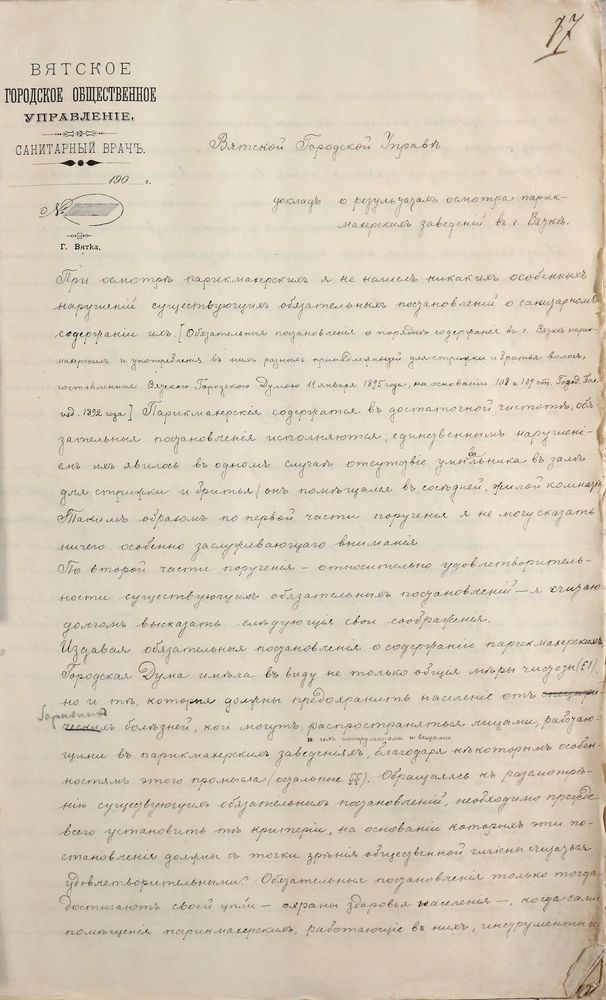 77
ВЯТСКОЕ
ГОРОДСКОЕ ОБЩЕСТВЕННОЕ
УПРАВЛЕНІЕ.
САНИТАРНЫЙ ВРАЧЪ.
190 г.
№
Г. Вятка.
Вятской Городской Управѣ
докладъ о результатахъ осмотра парик-
махерскихъ заведеній въ г. Вяткѣ.
При осмотрѣ парикмахерскихъ я не нашелъ никакихъ особенныхъ
нарушеній существующихъ обязательныхъ постановленій о санитарномъ
содержаніи ихъ. [Обязательныя постановленія о порядкѣ содержанія въ г. Вяткѣ парик-
махерскихъ и употребленія въ нихъ разныхъ принадлежностей для стрижки и бритья волосъ,
составленныя Вятскою Городскою Думою 11 января 1895 года, на основаніи 108 и 109 ст. Город. Пол.
изд. 1892 года] Парикмахерскія содержатся въ достаточной чистотѣ, обя-
зательныя постановленія исполняются, единственнымъ нарушені-
емъ ихъ явилось въ одномъ случаѣ отсутствіе умывальника въ залѣ
для стрижки и бритья (онъ помѣщался въ сосѣдней, жилой комнатѣ)
Такимъ образомъ по первой части порученія я не могу сказать
ничего особенно заслуживающаго вниманія
По второй части порученія – относительно удовлетворитель-
ности существующихъ обязательныхъ постановленій – я считаю
долгомъ высказать слѣдующія свои соображенія.
Издавая обязательныя постановленія о содержаніи парикмахерскихъ
Городская Дума имѣла въ виду не только общія мѣры чистоты (§1),
но и тѣ, которыя должны предохранить населеніе отъ
болѣзней, кои могутъ распространяться лицами, работаю-
и ихъ инструментами и вещами
щими въ парикмахерскихъ заведеніяхъ, благодаря нѣкоторымъ особен-
ностямъ этого промысла (остальные §§). Обращаясь къ разсмотрѣ-
нію существующихъ обязательныхъ постановленій, необходимо прежде
всего установить тѣ критеріи, на основаніи которыхъ эти по-
становленія должны съ точки зрѣнія общественной гигіены считаться
удовлетворительными. Обязательныя постановленія только тогда
достигаютъ своей цѣли – охраны здоровья населенія –, когда сами
помѣщенія парикмахерскихъ, работающіе въ нихъ, инструменты и